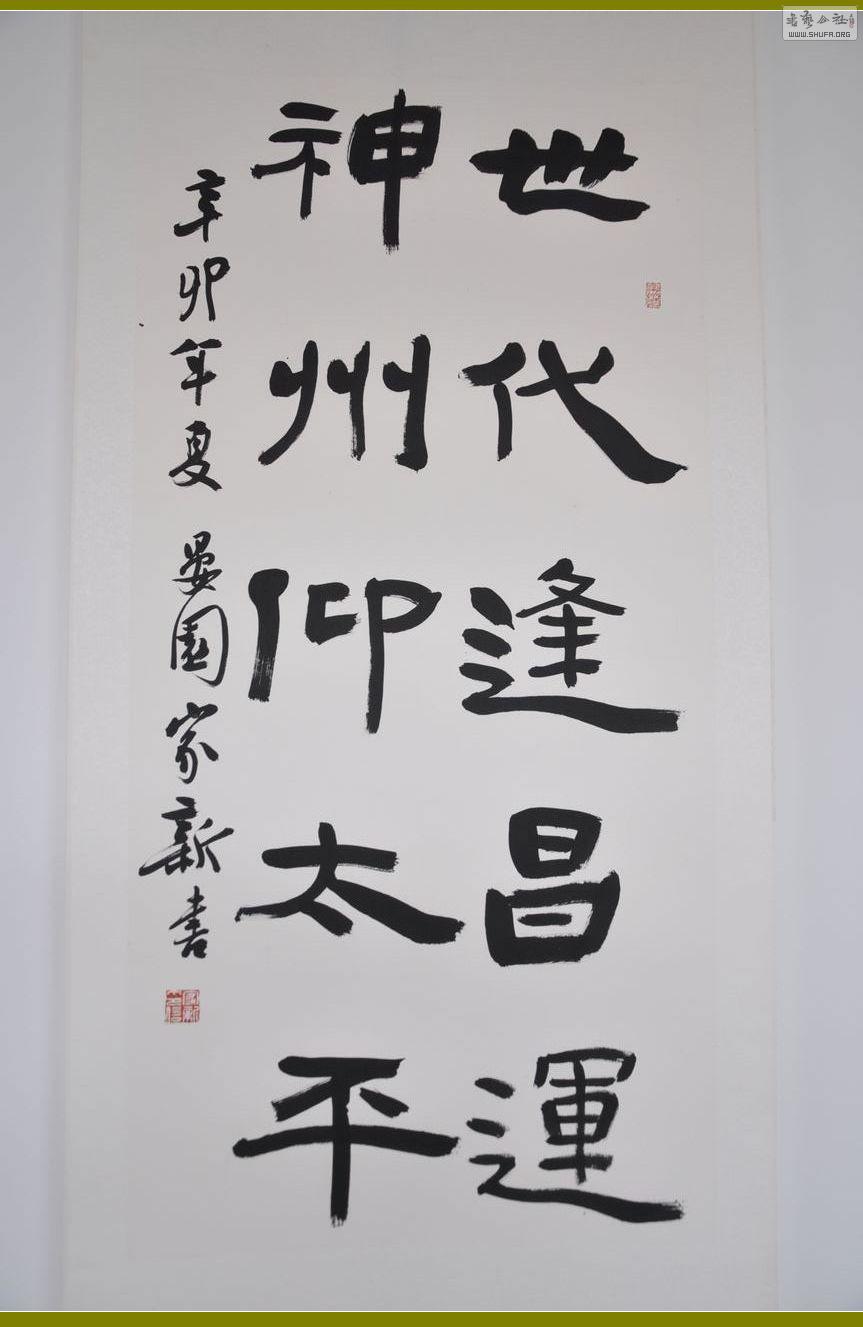 世代逢昌運
神州仰太平
辛卯年夏 晏園家新書
書藝公社
WWW.SHUFA.ORG